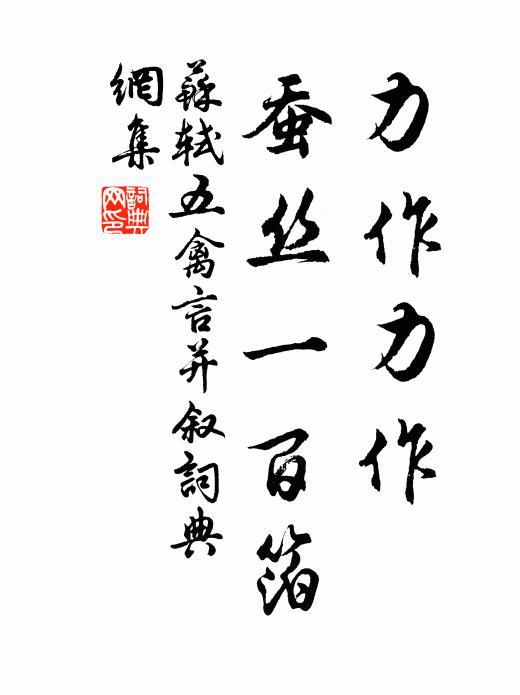 力作力作
蚕丝一百箔
蘇軾五禽言并叙詞典
網集
詞典
网印